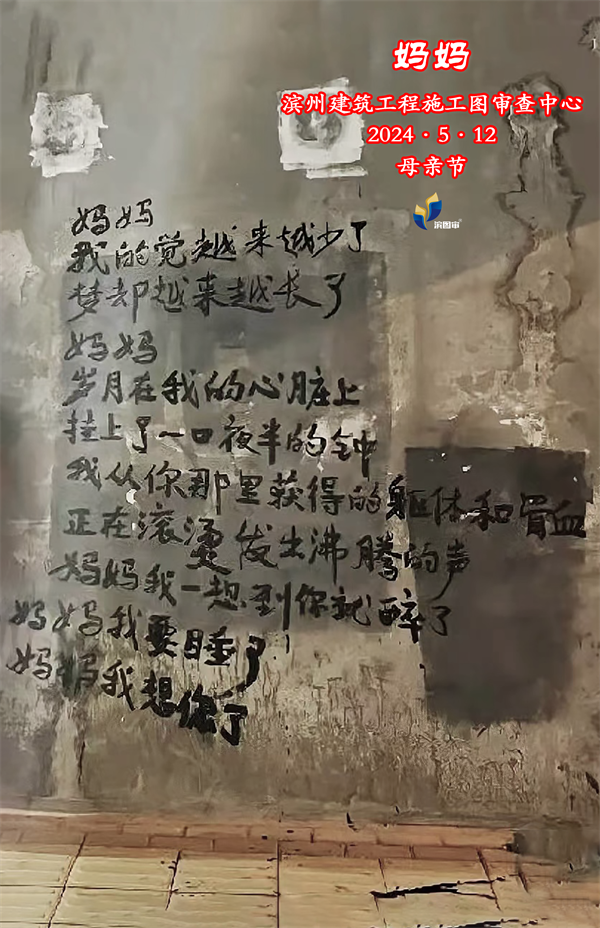 妈妈
滨州建筑工程施工图审查中心
2024·5·12
母亲节
滨图审
妈妈
我的觉越来越少了
梦却越来越长了
妈妈
岁月在我的心脏上
挂上了一口夜半的钟
我从你那里获得的躯体和骨血
正在滚烫发出沸腾的声
妈妈我一想到你就醉了
妈妈我要睡了
妈妈我想你了